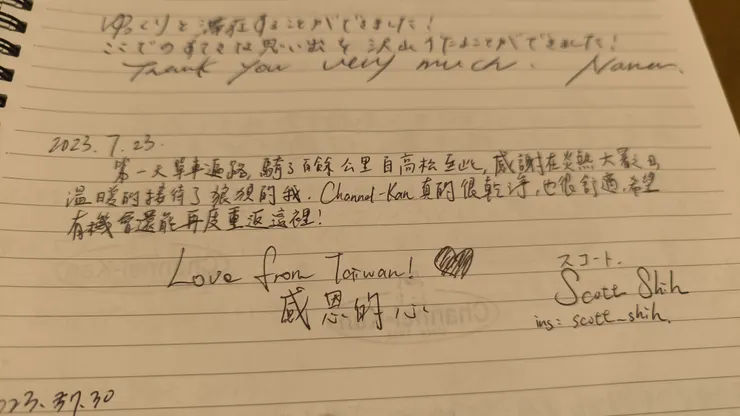 ゆっくりと滞在することができました!
ここでのすてきな思い出を沢山うたことができました!
Thank you very much. Nanan.
2023.7.23.
第一天單車遍路,騎了百餘公里自高松至此,感謝在炎熱大暑之日
溫暖的接待了狼狽的我. Channel-Kan 真的很乾淨,也很舒適,希望
有機會還能再度重返這裡!
Love from Taiwan!
感恩的心
スコート.
Scott Shih
ins: scott_shih.
023. 7.30